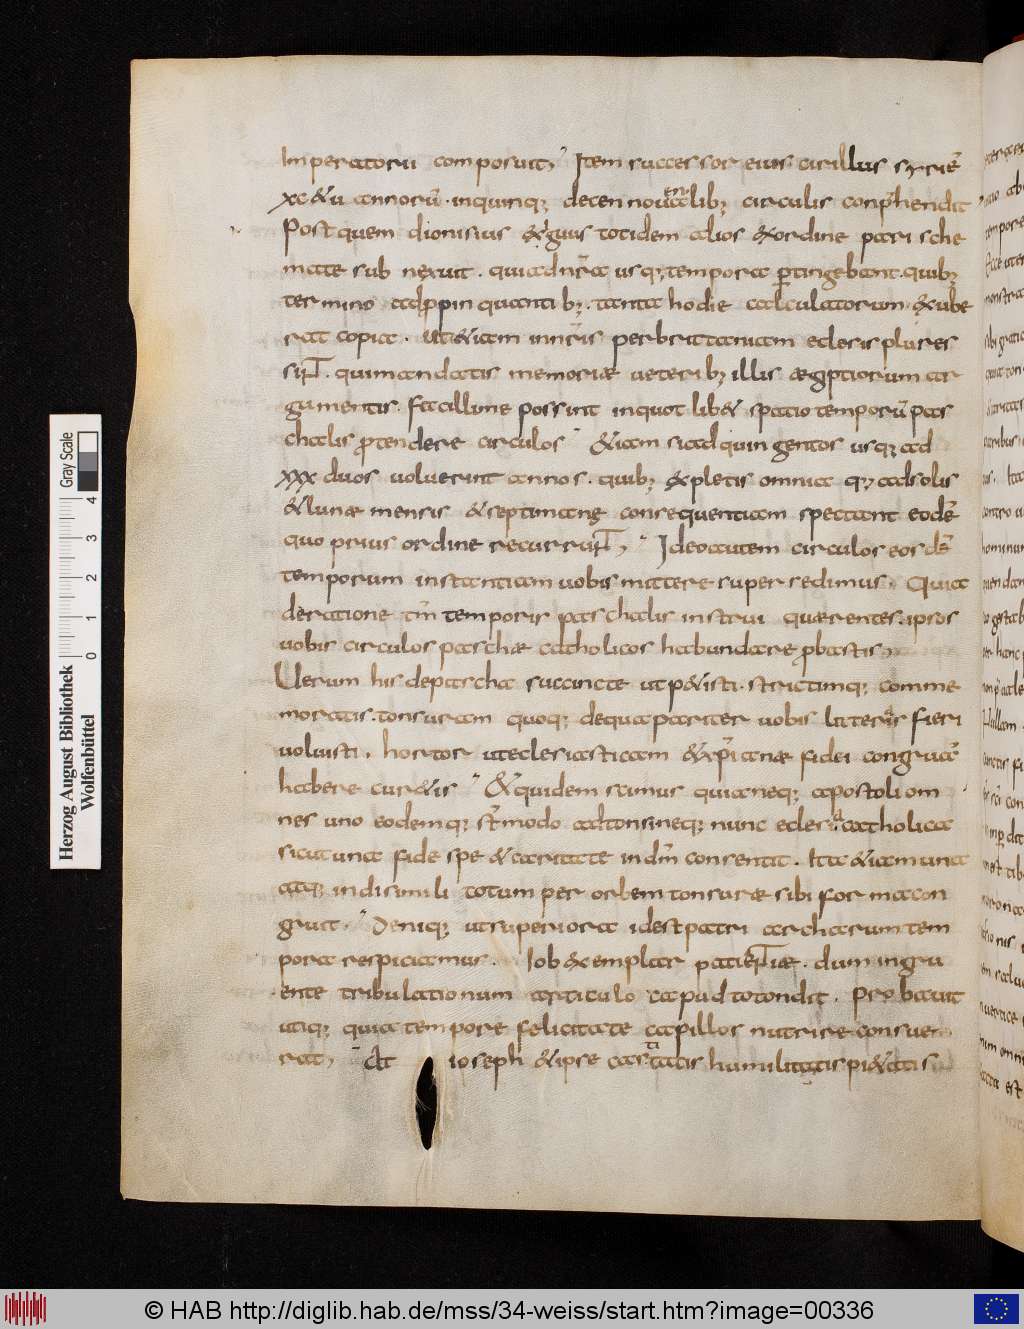 Imperatorii composuit, Item successor eius cirillus syriẽ
xc & u annorũ. inquinq; decennouenalib; circulis conp̄hendit
Post quem dionisius exiguus totidem alios exordine pari sche
mate sub nexuit. qui ad nr̃a usq; tempora p̱tingebant. quib;
termino adp̱pinquantib;. tanta hodie calculatorum exube
rat copia. ut &iam in nr̃is per brittaniam eclesiis plures
sint. qui mandatis memoriæ ueterib; illis ægiptiorum ar
gumentis. facillime possint inquotlib& spatio temporũ pas
chalis protendere circulos &iam si ad quingentos usq; ad
xxx duos uoluerint annos. quib; expletis omnia q; ad solis
& lunæ mensis & septimanę consequentiam spectant eodẽ
quo prius ordine recurrunt, Ideo autem circulos eosdẽ
temporum instantiam uobis mittere supersedimus. Quia
de ratione tm̃ temporis paschalis instrui quaerentes. ipsos
uobis circulos paschæ catholicos habundare probastis,
Uerum his de pascha succincte ut p&isti. strictimq; comme
moratis. tonsuram quoq; de qua pariter uobis litteris fieri
uoluisti. hortor ut eclesiasticam & xp̃ianæ fidei congruã
habere cur&is Et quidem scimus quia neq; apostoli om
nes uno eodemq; st̃ modo adtonsi neq; nunc eclesia catholica
sicut una fide spe & caritate in dm̃ consentit. Ita &iam una
atq; indisimili totum per orbem tonsuræ sibi forma con
gruit. Deniq; ut superiora id est patriarcharum tem
pora respiciamus. Iob exemplar patientiæ. dum ingru
ente tribulationum articulo caput totondit. Probauit
utiq; quia tempore felicitate capillos nutrire consue
rat, At ioseph & ipse castitatis humilitatis pi&atis
Herzog August Bibliothek
Wolfenbüttel
0 1 2 3 4
Gray Scale
© HAB http://diglib.hab.de/mss/34-weiss/start.htm?image=00336